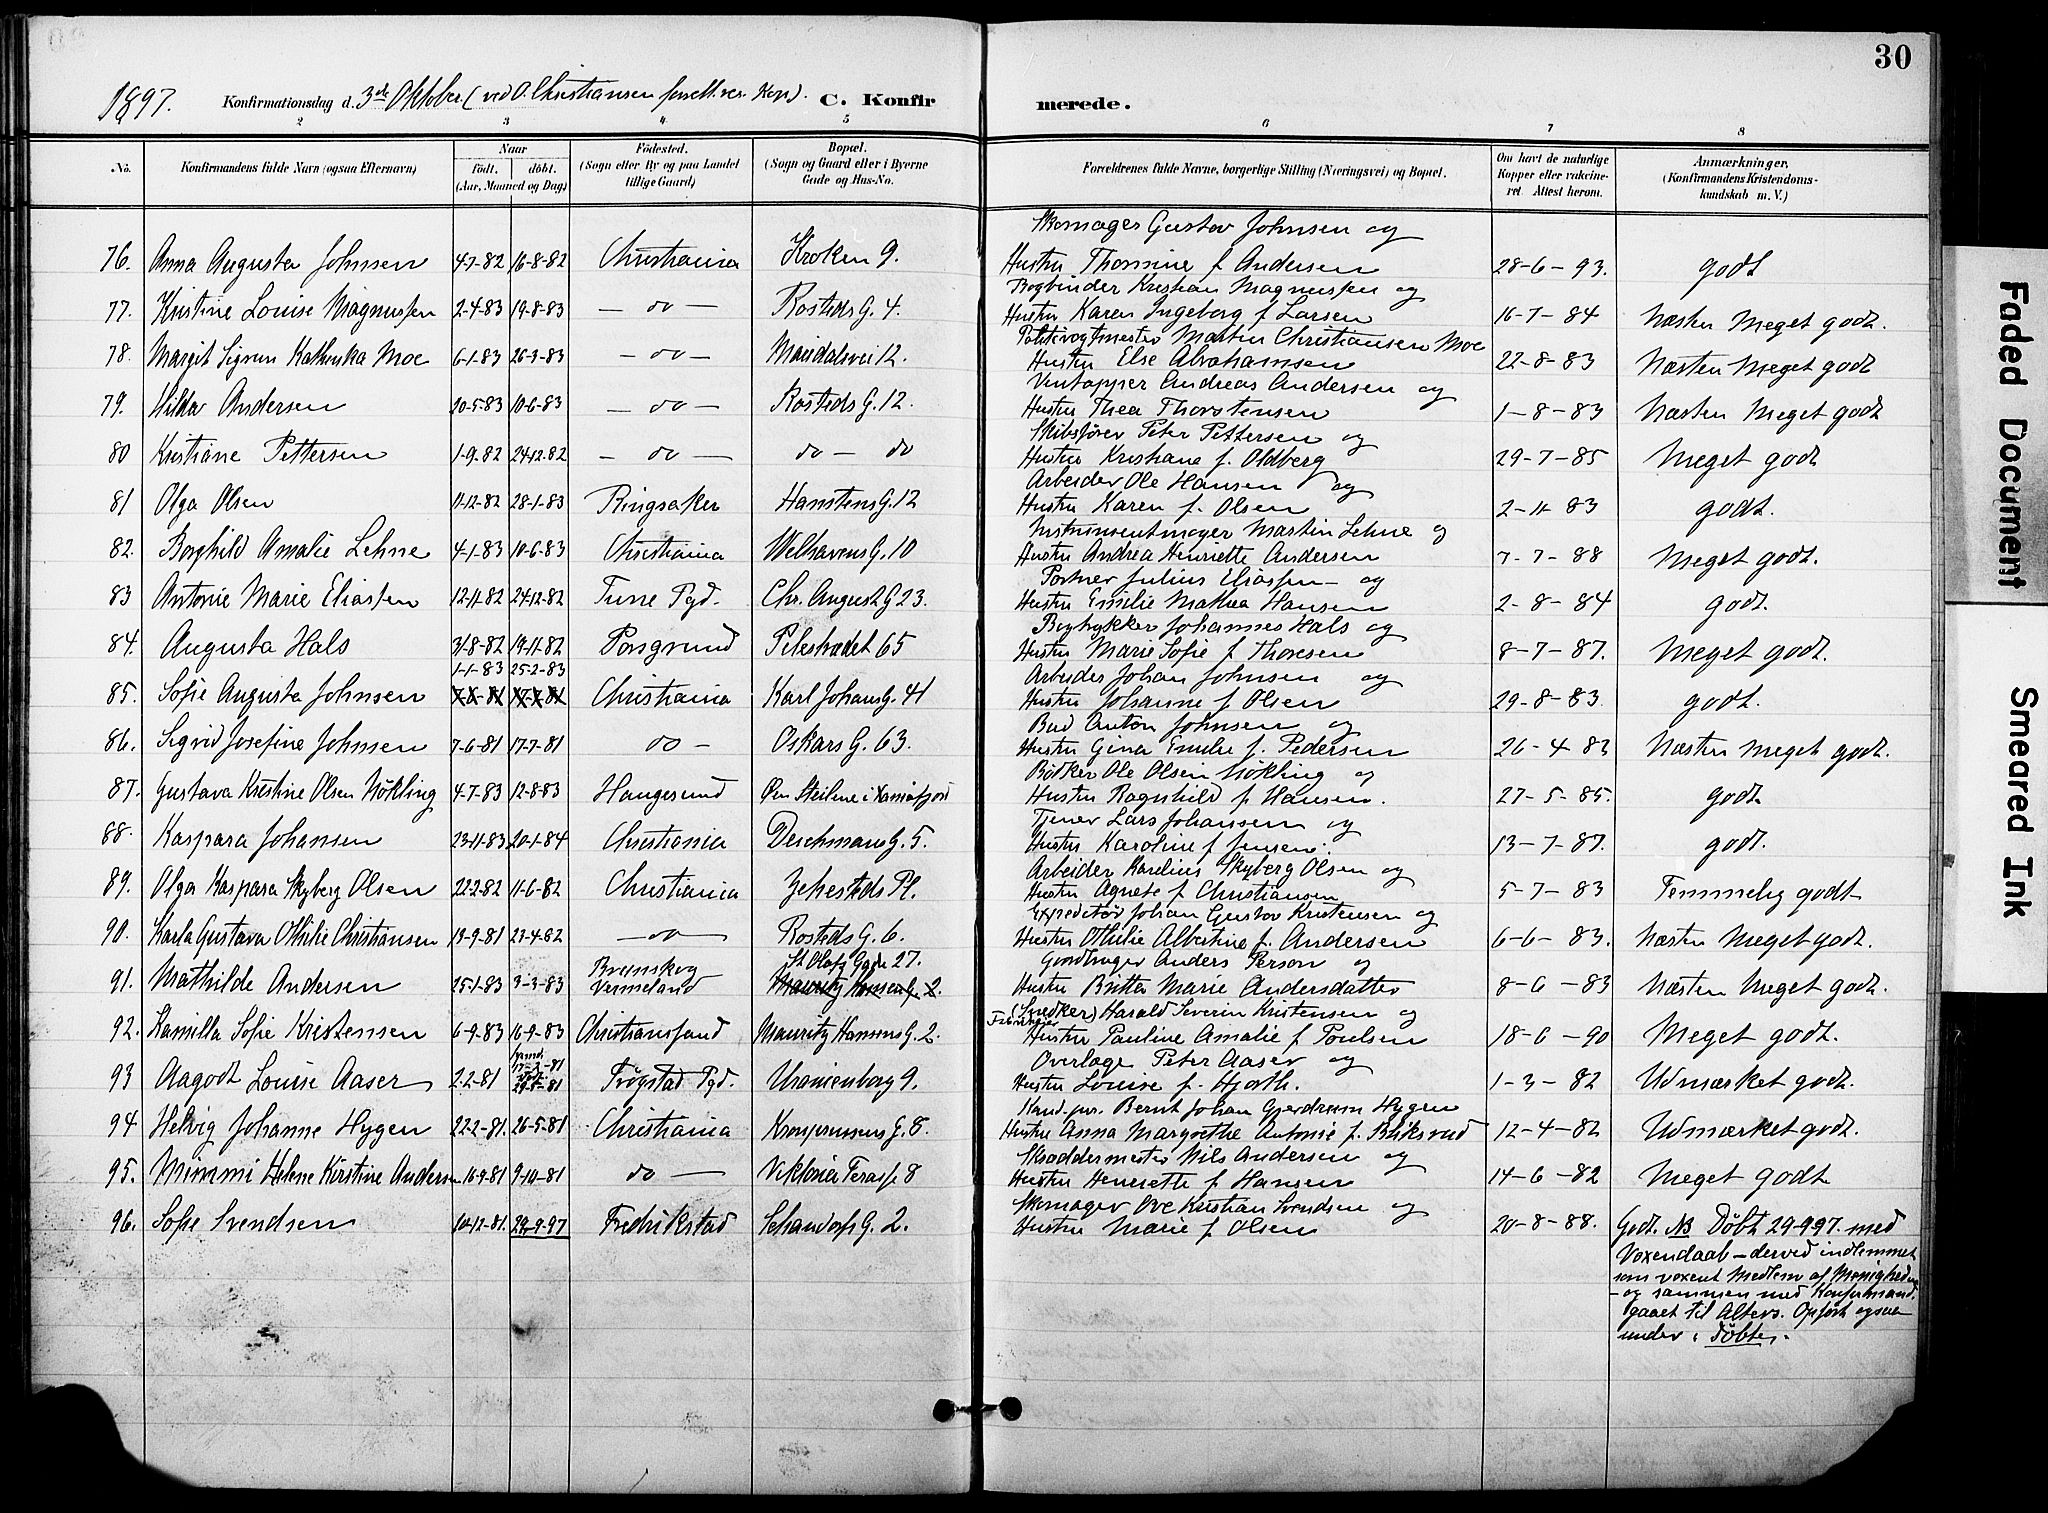 30
1897. Konfirmationsdag d. 3de Oktober (ved O. Christiansen Kap). C. Konfirmerede.
2 3 4 5 6 7 8
No. Konfirmandens fulde Navn (ogsaa Efternavn) Naar födt. döbt. (Aar, Maaned og Dag) Födested. (Sogn eller By og paa Landet tillige Gaard) Bopæl. (Sogn og Gaard eller i Byerne Gade og Hus-No. Forældrenes fulde Navne, borgerlige Stilling (Næringsvei) og Bopæl. Om havt de naturlige Kopper eller vakcineret. Attest herom. Anmærkninger, (Konfirmandens Kristendomskundskab m. V.)
Skomager Gustav Johnsen og
76. Anna Augusta Johnsen 4-7-82 16-8-82 Christiania Kroken 9. Hustru Thomine f Andersen 28-6-93. godt
Bogbinder Kristian Magnussen og
77. Kristine Louise Magnussen 2-4-83 19-8-83 — do — Rosteds G. 4. Hustru Karen Ingeborg f Larsen 16-7-84 Næsten Meget godt.
Politivagtmester Martin Christiansen Moe
78. Margit Sigrun Kathinka Moe 6-1-83 26-3-83 — do — Maridalsvei 12. Hustru Else Abrahamsen 22-8-83 Næsten Meget godt
Vintapper Andreas Andersen og
79. Hilda Andersen 20-5-83 10-6-83 — do — Rosteds G. 12. Hustru Thea Thorstensen 1-8-83 Næsten Meget godt
Skibsfører Peter Pettersen og
80 Kristiane Pettersen 1-9-82 24-12-82 — do — do — do Hustru Kristiane f. Oldberg 29-7-85 Meget godt
Arbeider Ole Hansen og
81 Olga Olsen 11-12-82 28-1-83 Ringsaker Hanstens G. 12 Hustru Karen f. Olsen 2-11-83 godt.
Instrumentmager Martin Lehne og
82. Borghild Amalie Lehne 4-1-83 10-6-83 Christiania Welhavens G. 10 Hustru Andrea Henriette Andersen 7-7-88 Meget godt.
Portner Julius Eliassen — og
83 Antonie Marie Eliassen 12-11-82 24-12-82 Tune Pgd. Chr. August G 23. Hustru Emilie Mathea Hansen 2-8-84 godt.
Bogtrykker Johannes Hals og
84. Augusta Hals 31-8-82 19-11-82 Porsgrund Pilestrædet 65 Hustru Marie Sofie f Thoresen 8-7-87. Meget godt.
1-1-83 25-2-83 Arbeider Johan Johnsen og
85. Sofie Augusta Johnsen Christiania Karl Johans G. 41 Hustru Johanne f Olsen 29-8-83. godt.
Bud Anton Johnsen og
86. Sigrid Josefine Johnsen 7-6-81 17-7-81 do — Oskars G. 63. Hustru Gina Emilie f. Pedersen 26-4-83 Næsten Meget godt.
Bødker Ole Olsen Nökling og
87. Gustava Kristine Olsen Nökling 4-7-83 12-8-83 Haugesund Øen Steilene i Xaniafjord Hustru Ragnhild f Hansen. 27-5-85. godt
Tjener Lars Johansen og
88. Kaspara Johansen 23-11-83 20-1-84 Christiania Deichmans G. 5. Hustru Karoline f Jensen. 13-7-87. godt.
Arbeider Karelius Skyberg Olsen og
89. Olga Kaspara Skyberg Olsen 22-2-82 11-6-82 Christiania Zehesteds Pl. Hustru Agnete f Christiansen 5-7-83 Temmelig godt
Expeditör Johan Gustav Kristensen og
90. Karla Gustava Othilie Christiansen 13-9-81 23-4-82 — do — Rosteds G. 6. Hustru Othilie Albertine f. Andersen 6-6-83. Næsten Meget godt.
Brunskog St Olafs Gade 27. Gaardbruger Anders Person og
91. Mathilde Andersen 25-1-83 3-3-83 Vermeland Mauritz Hansens G. 2. Hustru Britta Marie Andersdatter 8-6-83 Næsten Meget godt.
(Snedker) Harald Severin Kristensen og
92. Kamilla Sofie Kristensen 6-9-83 16-9-83 Christianssand Mauritz Hansens G. 2. Hustru Pauline Amalie f Poulsen 18-6-90 Meget godt.
Overlæge Peter Aaser og
93 Aagodt Louise Aaser 2-2-81 Trögstad Pgd. Uranienborg 9. Hustru Louise f. Hjorth. 1-3-82 Udmærket godt.
Kand. jur. Bernt Johan Gjerdrum Hygen
94 Helvig Johanne Hygen 22-2-81. 26-5-81 Christiania Kronprinsens G. 8. Hustru Anna Margrethe Antonie f. Bliksrud 12-4-82 Udmærket godt.
Skræddermester Nils Andersen og
95. Mimmi Helene Kirstine Andersen 16-9-81 9-10-81 do — Viktoria Terasse 8 Hustru Henriette f Hansen 14-6-82 Meget godt
Skomager Ove Kristian Svendsen og
96. Sofie Svendsen 10-12-81. 29-9-97 Fredrikstad Schandorfs G. 2. Hustru Marie f Olsen 20-8-88. Godt. NB Döbt 29-9-97. med
Voxendaab – derved indlemmet
som voxent Medlem af Menigheden
– og sammen med Konfirmand.
gaaet til Alters. Opfört ogsaa
under: Döbte.
Faded Document
Smeared Ink